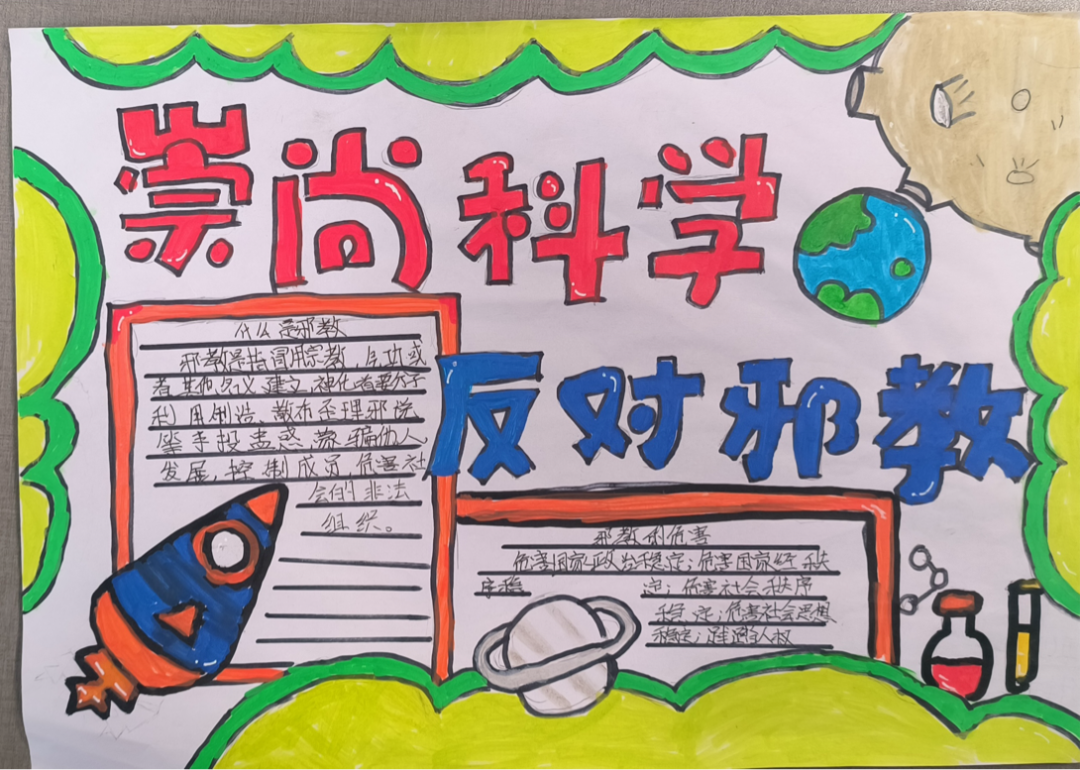 崇尚科学
反对邪教
什么是邪教
邪教是指冒用宗教、气功或
者其他名义建立,神化首要分子
利用制造、散布歪理邪说
等手段蛊惑、蒙骗他人,
发展,控制成员,危害社
会的非法
组织。
邪教的危害
危害国家政治稳定;危害国家经 秩
序稳
定;危害社会秩序
稳 定;危害社会思想
稳定;践踏人权